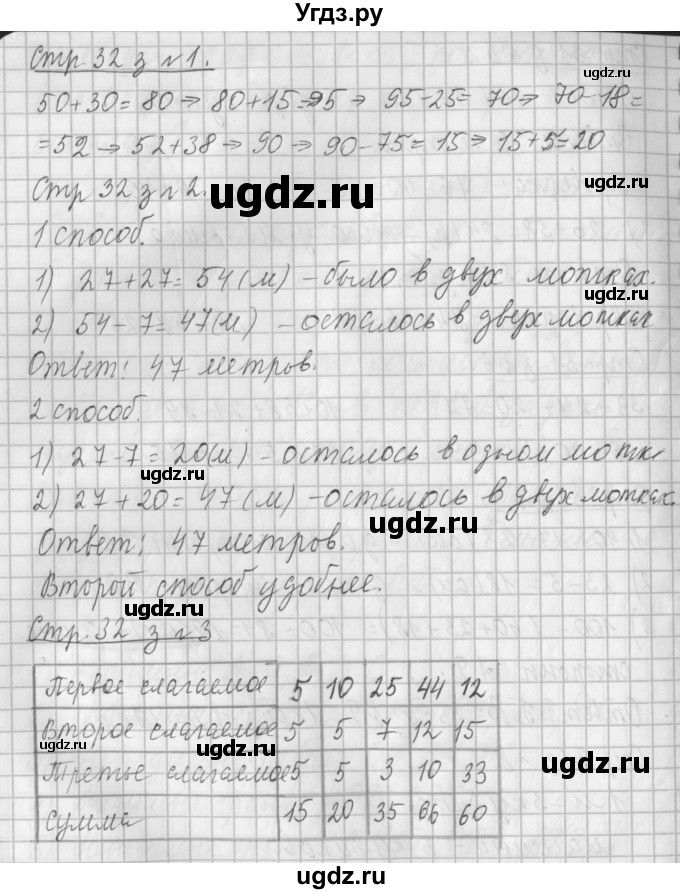 Угдз.ру
Стр 32 з №1.
ugdz.ru
50+30= 80 ⇒ 80+15=95 ⇒ 95-25= 70⇒ 70-18=
=52 → 52+38 → 90 → 90-75= 15 ⇒ 15+5=20
ugdz.ru
Стр 32 з №2.
ugdz.ru
1 способ.
1) 27+27= 54(м) - было в двух мотках.
ugdz.ru
2) 54-7=47(м) - осталось в двух мотках
Ответ: 47 метров.
2 способ.
1) 27-7=20(м) - осталось в одном мотк
ugdz.ru
2) 27+20=47(м) - осталось в двух мотках.
ugdz.ru
Ответ: 47 метров.
Второй способ удобнее.
ugdz.ru
Стр. 32 з №3
Первое слагаемое 5 10 25 44 12
Второе слагаемое 5 5 7 12 15
ugdz.ru
ugdz.ru
ugdz.ru
Третье слагаемое 5 5 3 10 33
Сумма 15 20 35 66 60
ugdz.ru